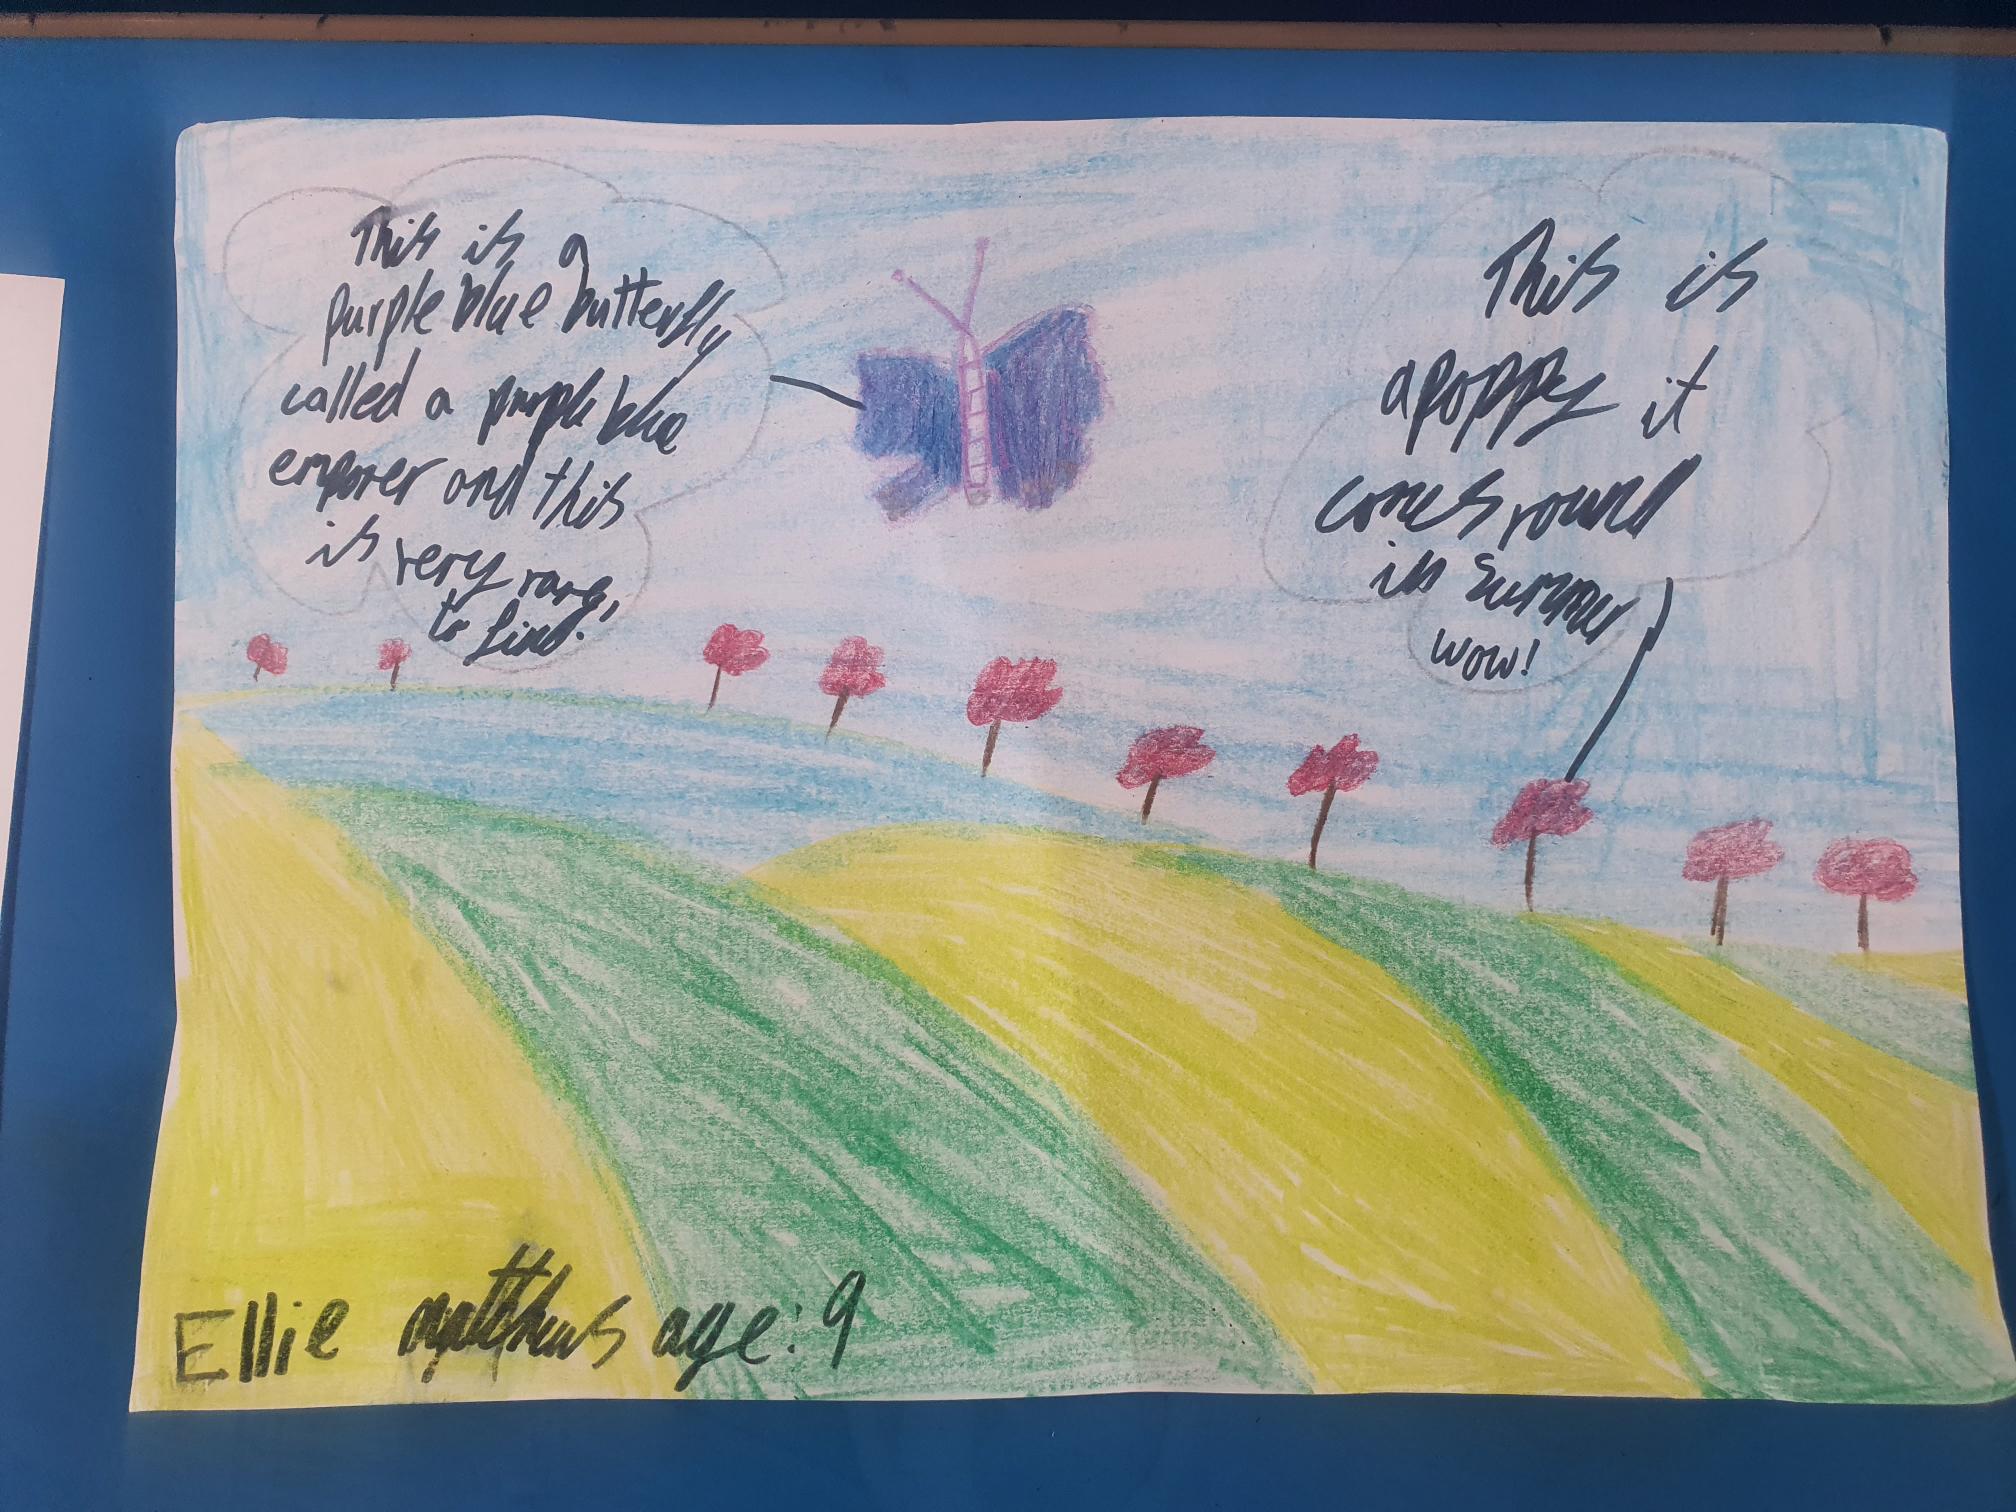 This is a
purple blue butterfly
called a purple blue
emporer and this
is very rare,
to find!
This is
a poppy it
comes round
in summer
wow!
Ellie matthews age: 9